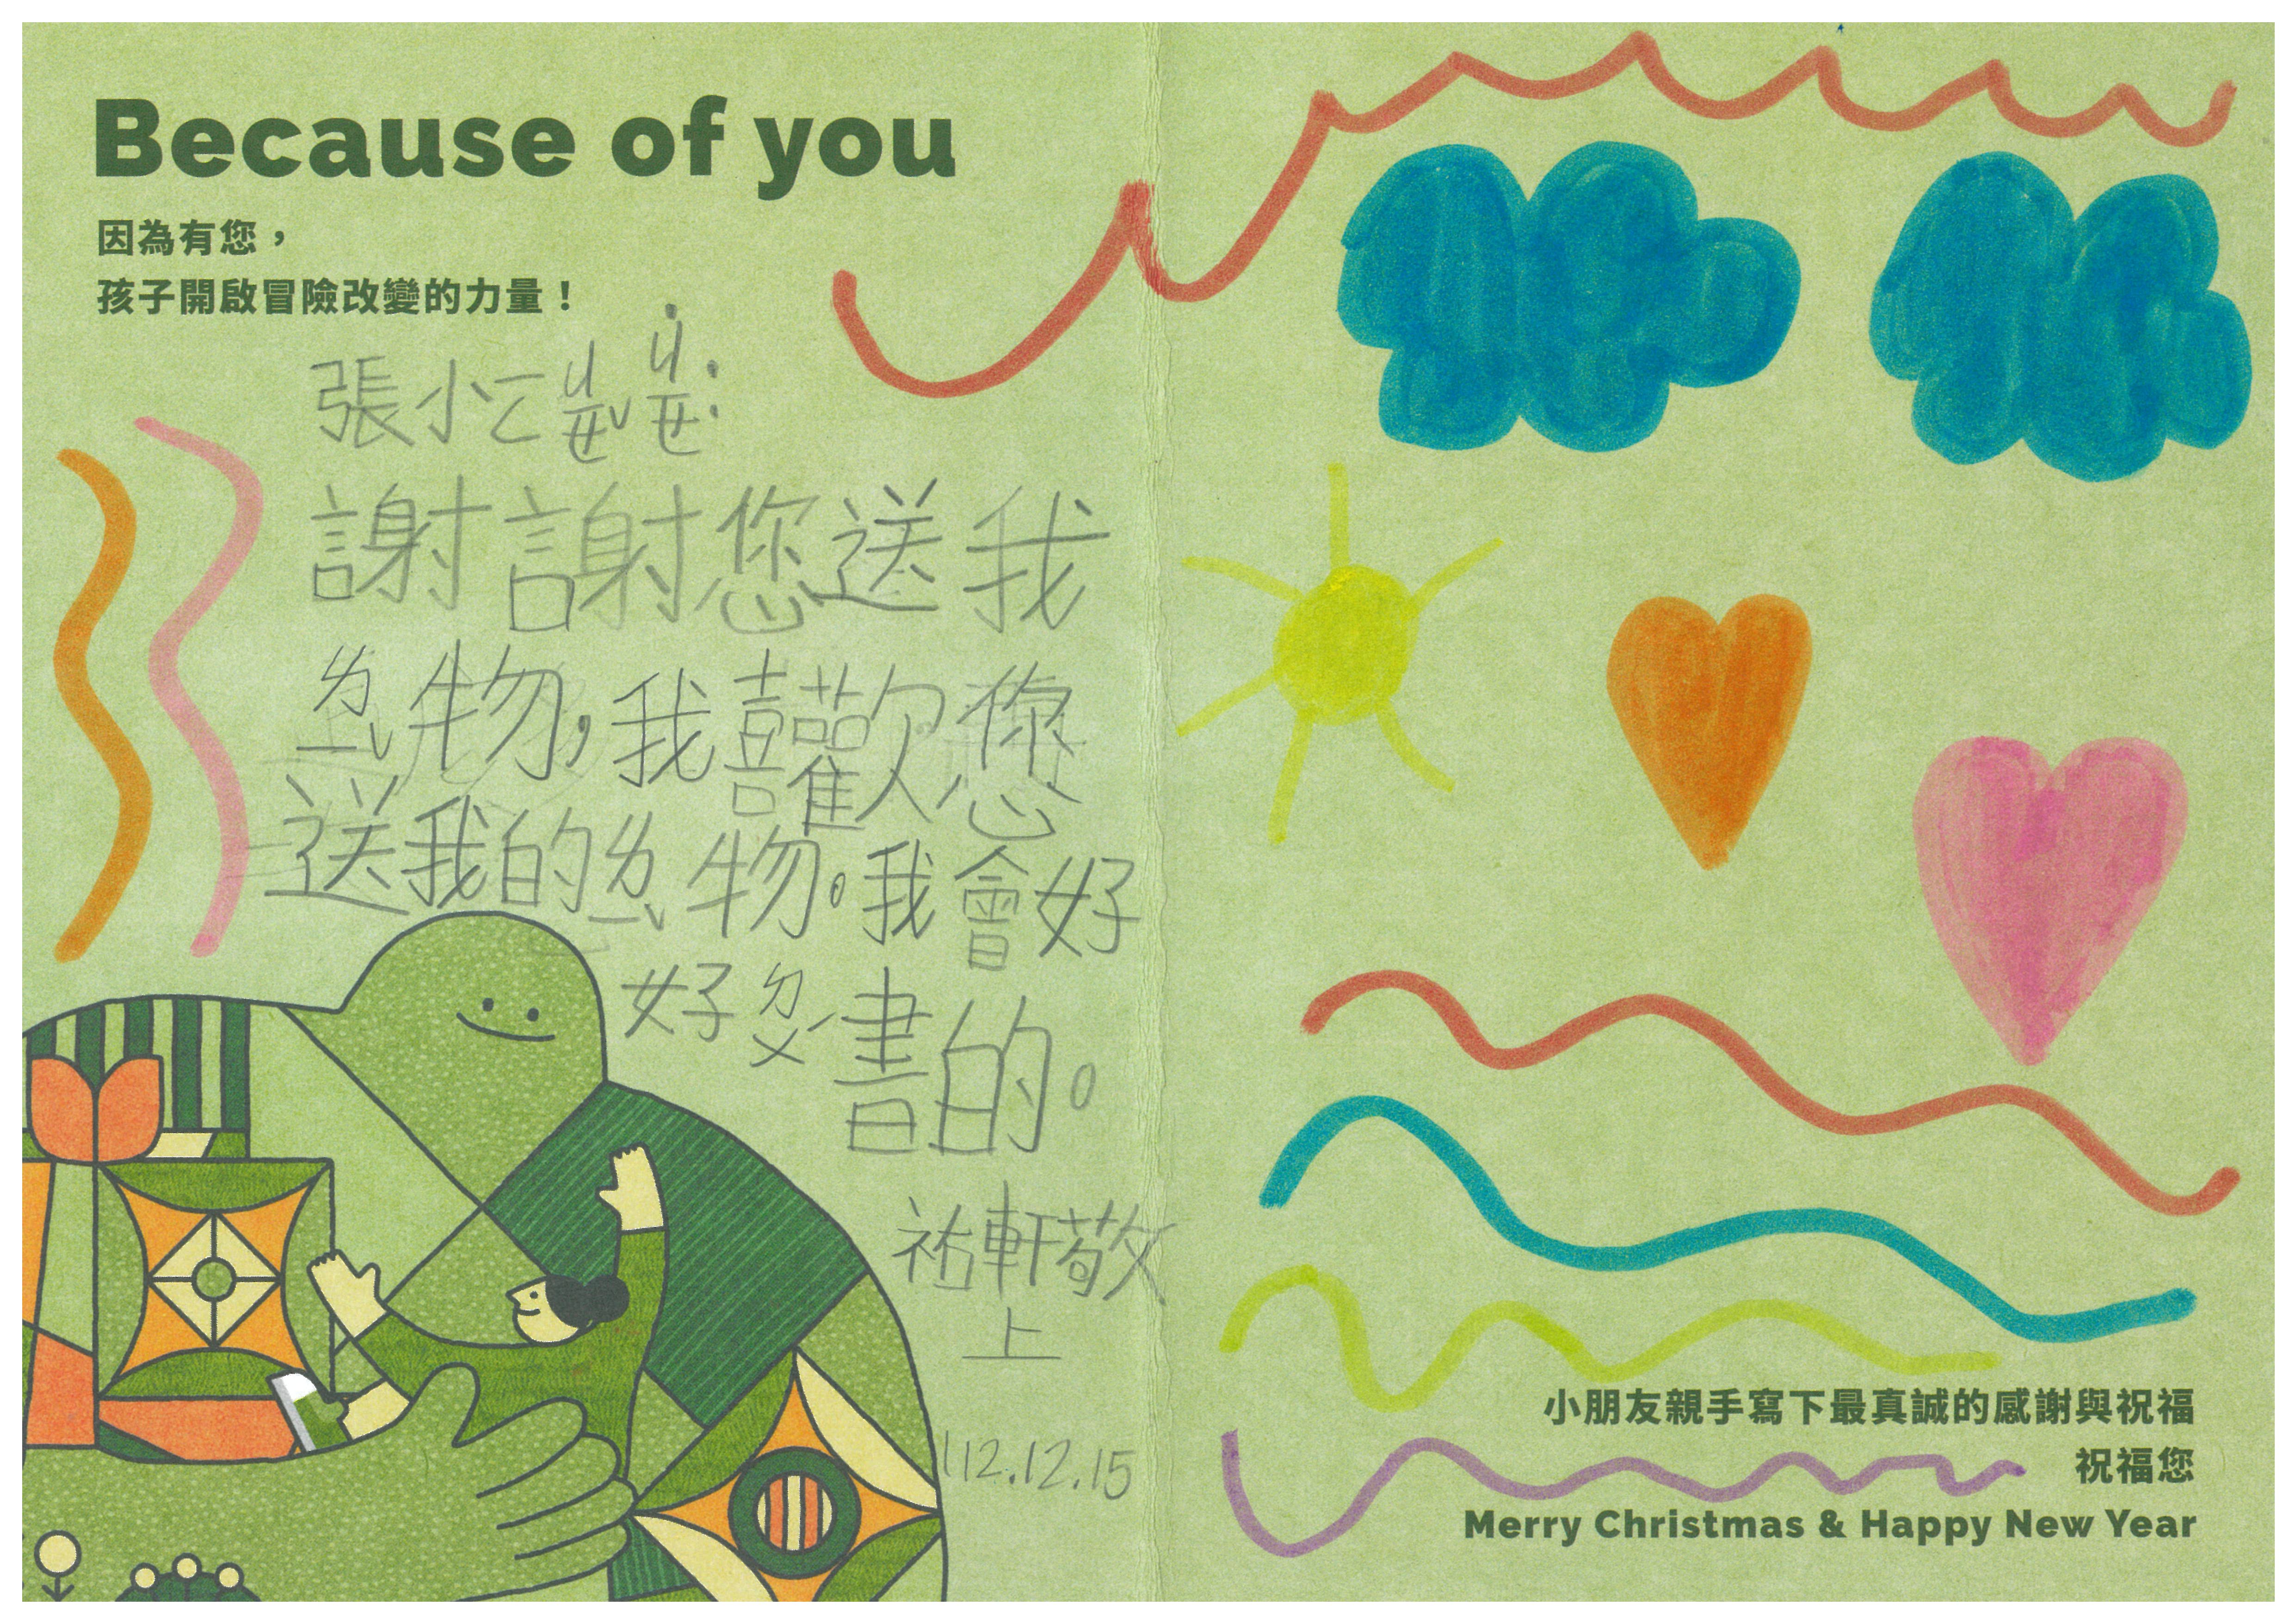 Because of you
因為有您，
孩子開啟冒險改變的力量！
張小ㄈㄐㄧㄝˇㄐㄧㄝ˙
謝謝您送我
ㄌㄧˇ物，我喜歡您
送我的ㄌㄧˇ物。我會好
好ㄉㄨˊ書的。
祐軒敬
上
112.12.15
小朋友親手寫下最真誠的感謝與祝福
祝福您
Merry Christmas & Happy New Year